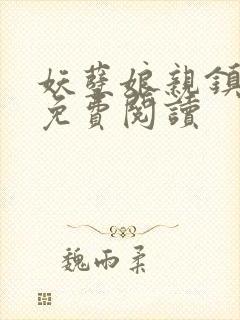 妖孽娘親鎮
免費閱讀
魏雨柔